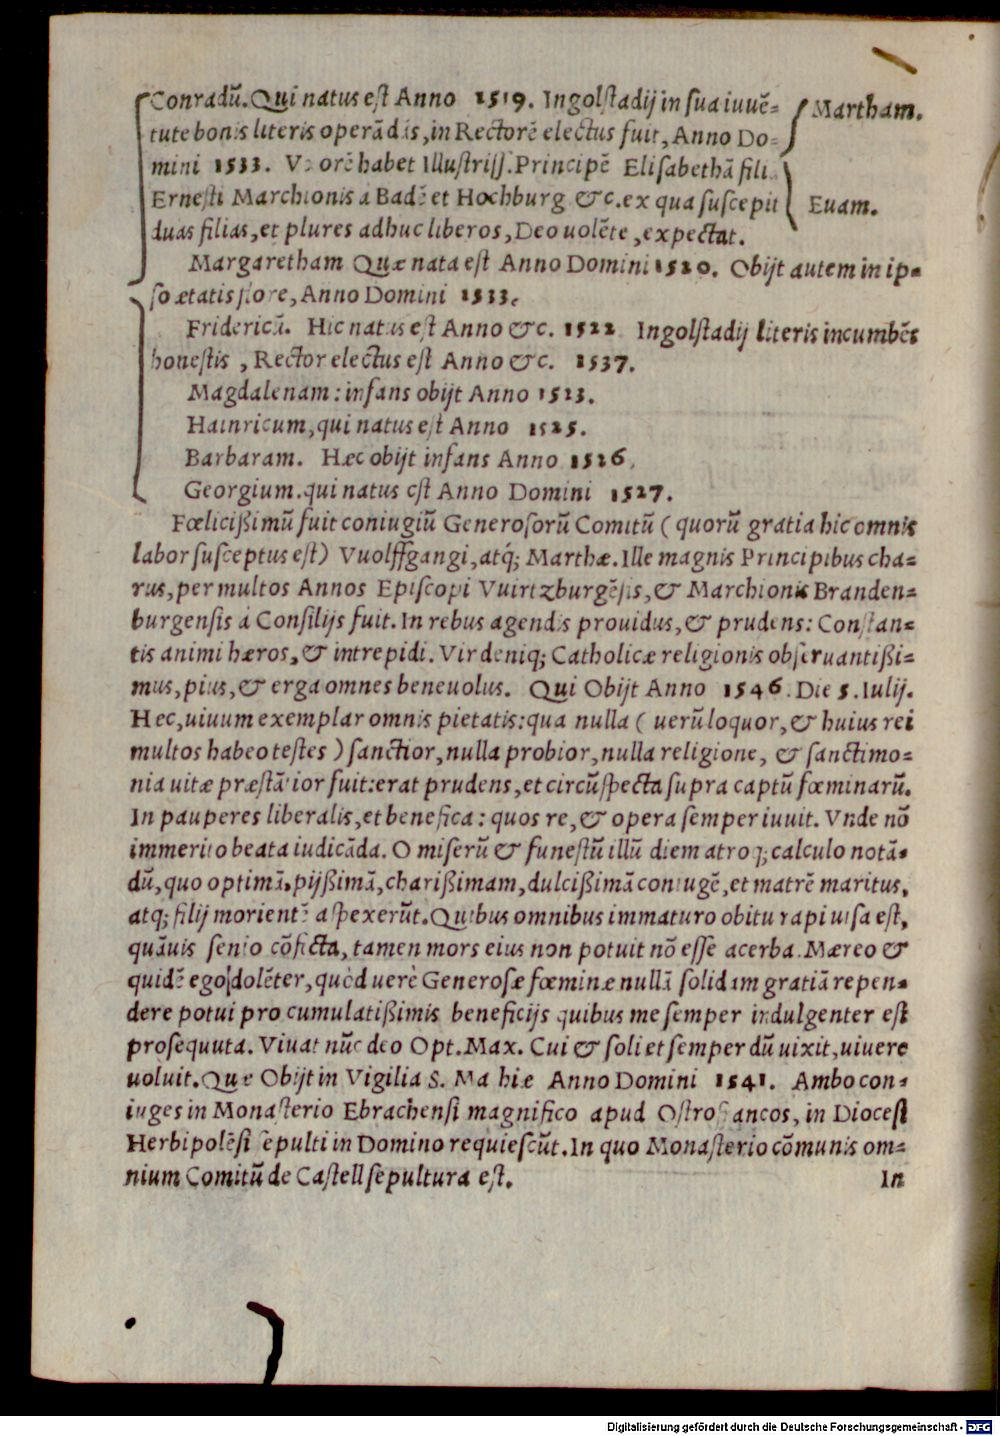 Conradũ. Qui natus est Anno 1519. Ingolstadij in sua iuuẽ= Martham.
tute bonis literis operã dās, in Rectorẽ electus fuit, Anno Do=
mini 1533. Vxorẽ habet Illustriss. Principẽ Elisabethã fili
Ernesti Marchionis a Badẽ et Hochburg &c. ex qua suscepit Euam.
duas filias, et plures adhuc liberos, Deo uolẽte, expectat.
Margaretham Quæ nata est Anno Domini 1520. Obijt autem in ip=
so ætatis flore, Anno Domini 1533.
Fridericũ. Hic natus est Anno &c. 1522 Ingolstadij literis incumbẽs
honestis, Rector electus est Anno &c. 1537.
Magdalenam: infans obijt Anno 1523.
Hainricum, qui natus est Anno 1525.
Barbaram. Hæc obijt infans Anno 1526.
Georgium. qui natus est Anno Domini 1527.
Fœlicißimũ fuit coniugiũ Generosorũ Comitũ (quorũ gratia hic omnis
labor susceptus est) Vuolffgangi, atq́; Marthæ. Ille magnis Principibus cha=
rus, per multos Annos Episcopi Vuirtzburgẽsis, & Marchionis Branden=
burgensis á Consilijs fuit. In rebus agendis prouidus, & prudens: Constan=
tis animi hæros, & intrepidi. Vir deniq; Catholicæ religionis obseruantißi=
mus, pius, & erga omnes beneuolus. Qui Obijt Anno 1546. Die 5. Iulij.
Hec, uiuum exemplar omnis pietatis: qua nulla (uerũ loquor, & huius rei
multos habeo testes) sanctior, nulla probior, nulla religione, & sanctimo=
nia uitæ præstãtior fuit: erat prudens, et circũspecta supra captũ fœminarũ.
In pauperes liberalis, et benefica: quos re, & opera semper iuuit. Vnde nõ
immerito beata iudicãda. O miserũ & funestũ illũ diem atroq; calculo notã=
dũ, quo optimã, pijßimã, charißimam, dulcißimã coniugẽ, et matrẽ maritus,
atq; filij morientẽ aspexerũt. Quibus omnibus immaturo obitu rapi uisa est,
quãuis senio cõficta, tamen mors eius non potuit nõ esse acerba. Mæreo &
quidẽ ego dolẽter, quòd uerè Generosæ fœminæ nullã solidam gratiã repen=
dere potui pro cumulatißimis beneficijs quibus me semper indulgenter est
prosequuta. Viuat nũc deo Opt. Max. Cui & soli et semper dũ uixit, uiuere
uoluit. Quæ Obijt in Vigilia S. Mathiæ Anno Domini 1541. Ambo con=
iuges in Monasterio Ebrachensi magnifico apud Ostrofrancos, in Diocesi
Herbipolẽsi sepulti in Domino requiescũt. In quo Monasterio cõmunis om=
nium Comitũ de Castell sepultura est.
In
Digitalisierung gefördert durch die Deutsche Forschungsgemeinschaft - DFG